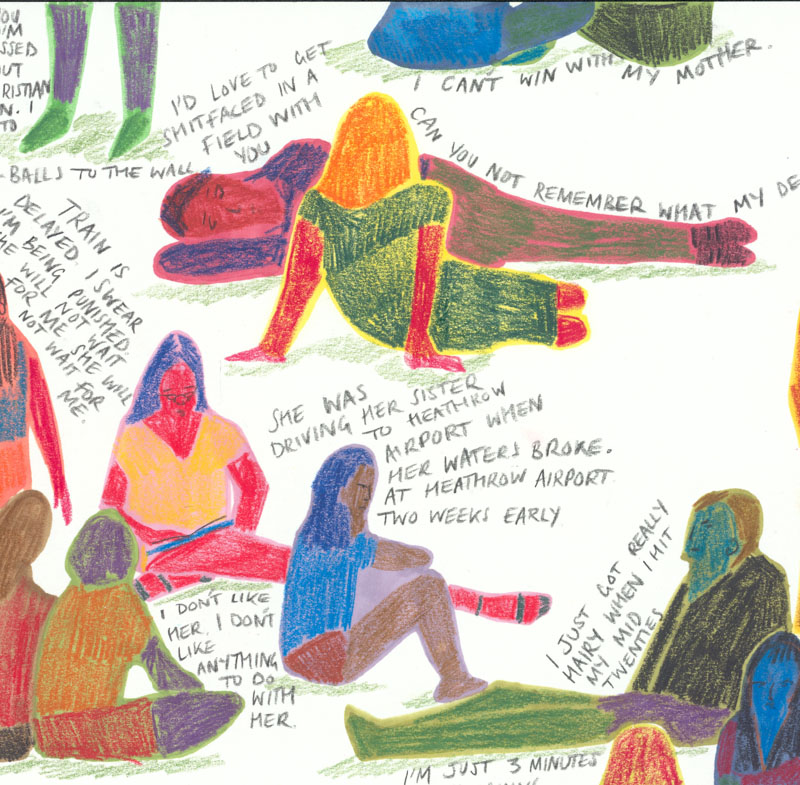 YOU
I'M
SSED
OUT
RISTIAN
N. I
TO
- BALLS TO THE WALL
I'D LOVE TO GET
SHITFACED IN A
FIELD WITH
YOU
I CANT WIN WITH MY MOTHER.
CAN YOU NOT REMEMBER WHAT MY DE
TRAIN IS
DELAYED. I SWEAR
I'M BEING PUNISHED.
HE WILL NOT WAIT
FOR ME SHE WILL
NOT WAIT FOR
ME.
SHE WAS
DRIVING HER SISTER
TO HEATHROW
AIRPORT WHEN
HER WATERS BROKE.
AT HEATHROW AIRPORT.
TWO WEEKS EARLY
I DON'T LIKE
HER. I DON'T
LIKE
ANYTHING
TO DO
WITH
HER.
I JUST GOT REALLY
HAIRY WHEN I HIT
MY MID
TWENTIES
I'M JUST 3 MINUTES